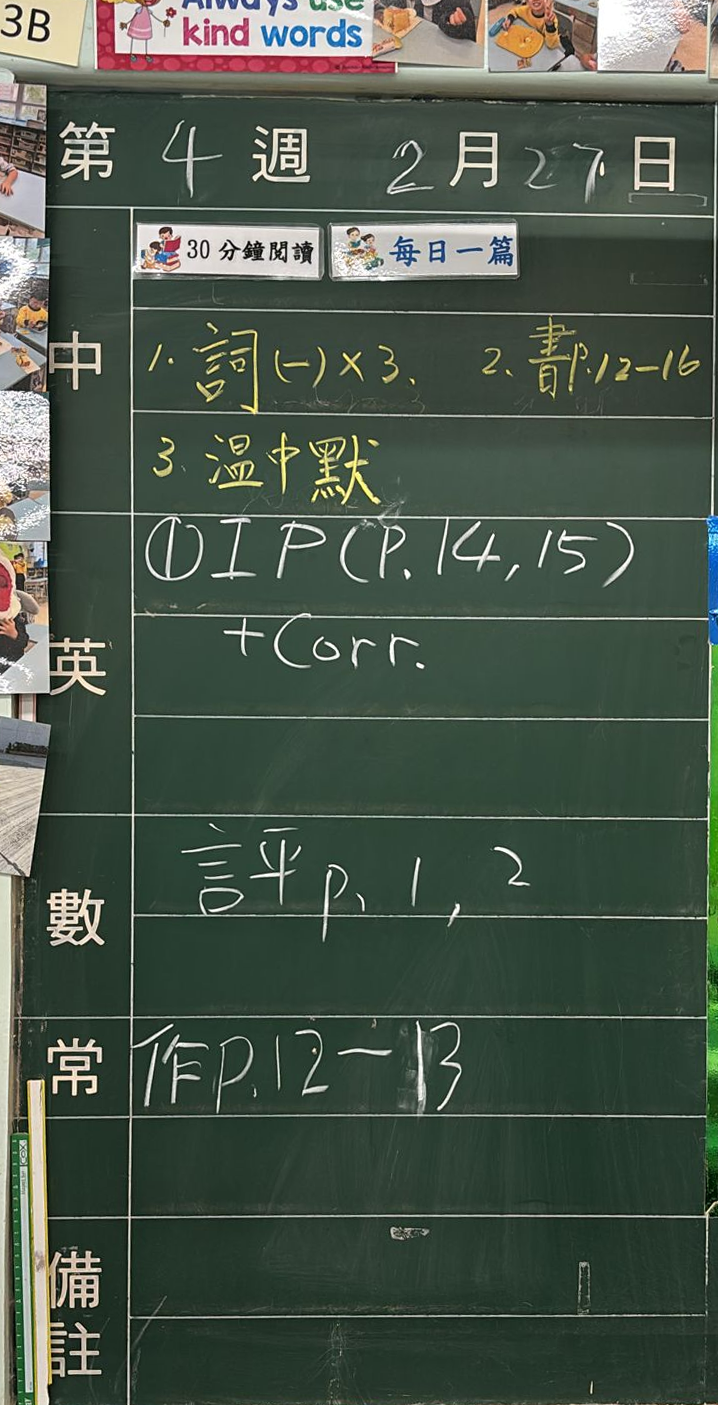 3B
Always use
kind words
第 4 週 2 月 27 日
30 分鐘閱讀 每日一篇
中
1. 詞(一)×3. 2. 書P.12-16
3. 溫中默
英
①IP(P.14,15)
+Corr.
數
評p. 1, 2
常
作p.12-13
備
註